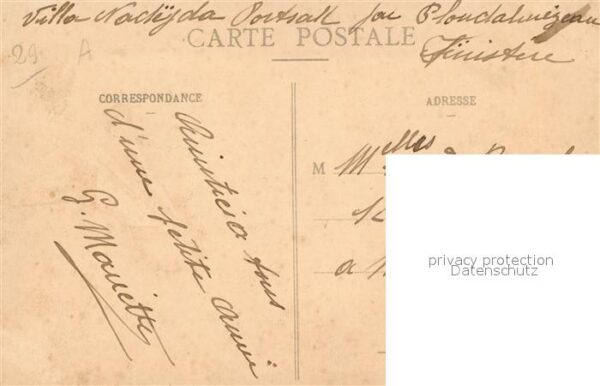 Villa Portsall par Ploudalmézeau
CARTE POSTALE
Finistère
29 A
CORRESPONDANCE
ADRESSE
Amitiés à tous
d'une petite amie
G. Mariette
M elles
à
privacy protection
Datenschutz